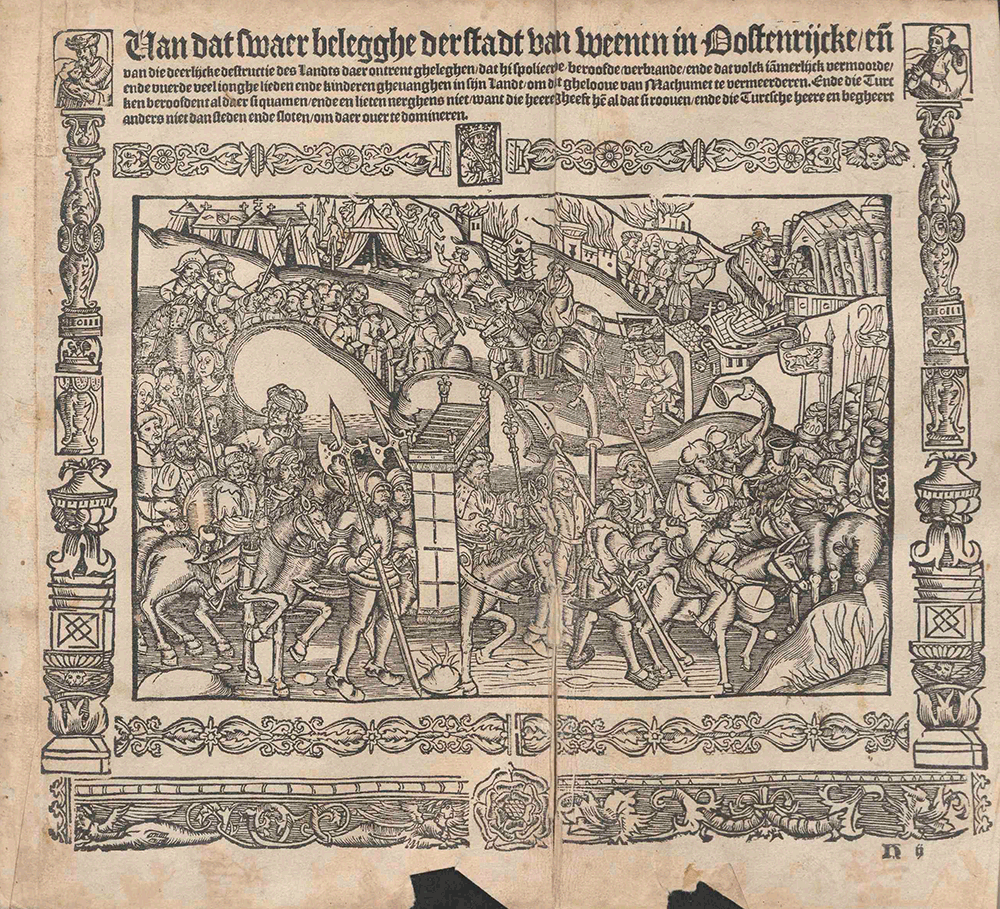 Van dat swaer belegghe der stadt van Weenen in Oostenrijcke/ eñ
van die deerlijcke destructie des Landts daer ontrent gheleghen/ dat hi spolieerde/ beroofde/ verbrande/ ende dat volck iãmerlijck vermoorde/
ende vuerde veel ionghe lieden ende kinderen gheuanghen in sijn Landt/ om dat gheloove van Machumet te vermeerderen. Ende die Turc
ken beroofdent al daer si quamen/ ende en lieten nerghens niet/ want die heere gheeft hē al dat si rooven/ ende die Turcsche heere en begheert
anders niet dan steden ende sloten/ om daer over te domineren.
N ij